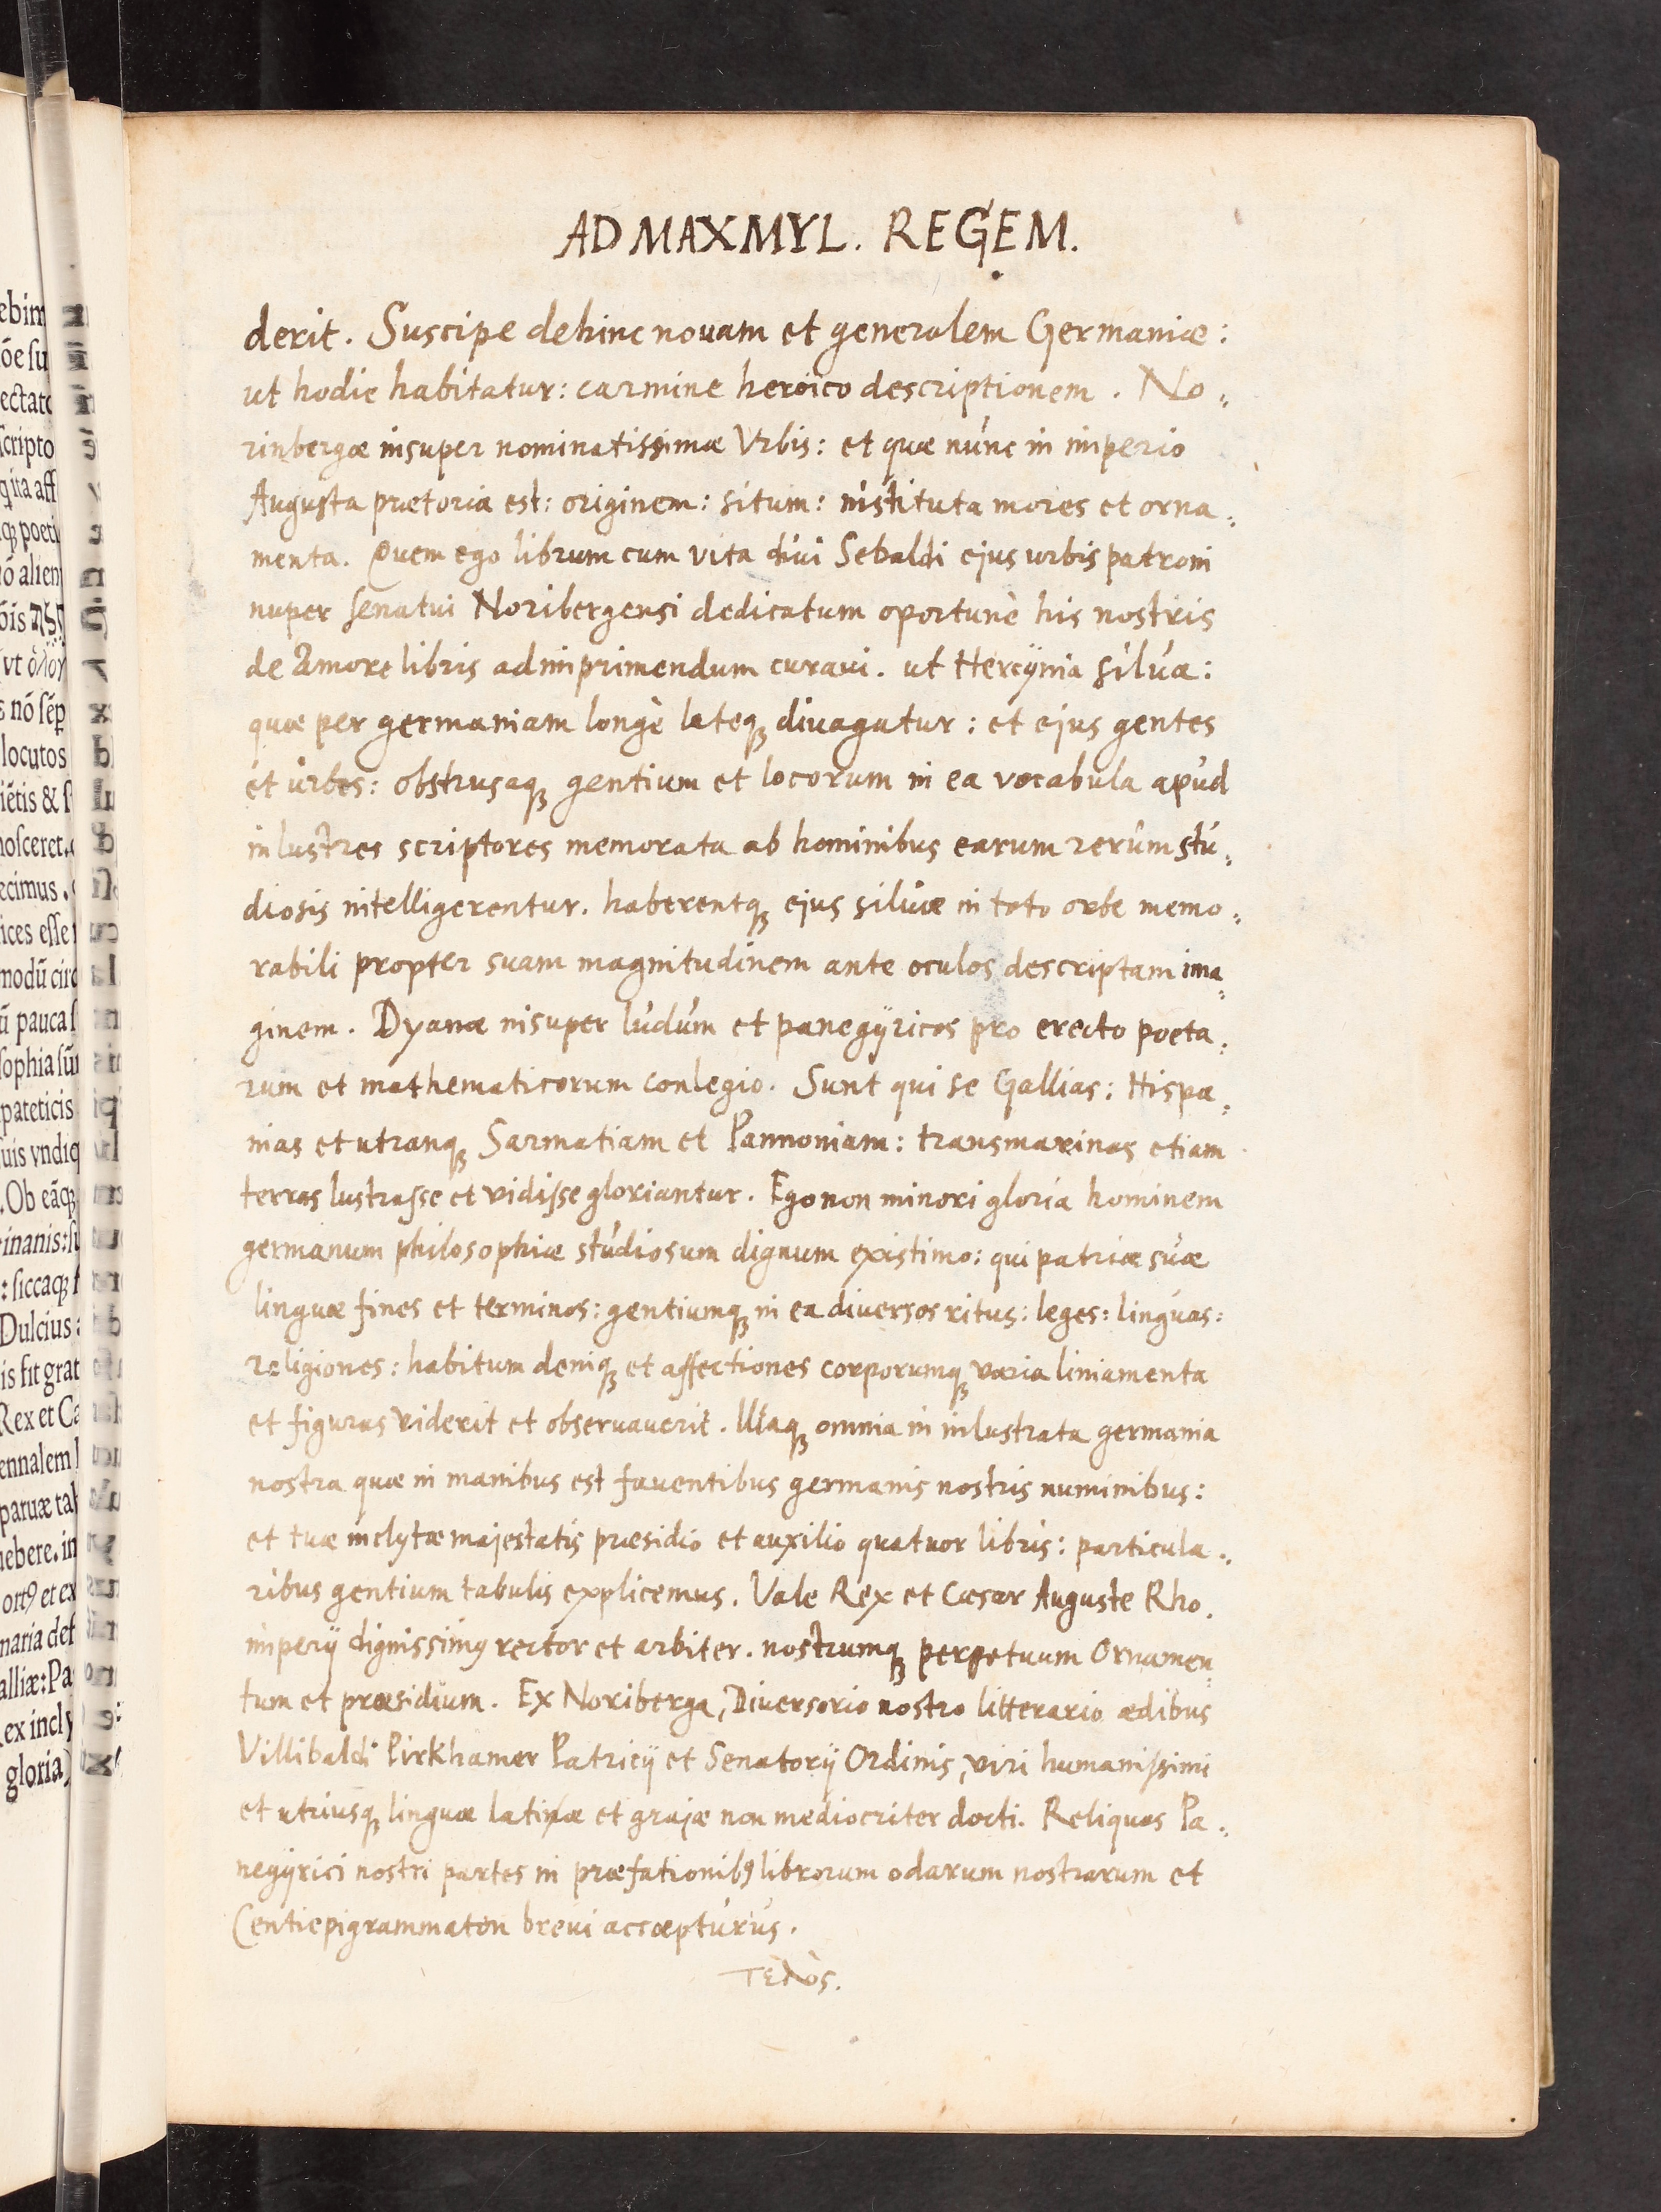 AD MAXMYL. REGEM.
derit. Suscipe dehinc novam et generalem Germaniæ:
ut hodie habitatur: carmine heroico descriptionem. No-
rinbergæ insuper nominatissimæ Vrbis: et quæ nunc in imperio
Augusta prætoria est: originem: situm: instituta mores et orna-
menta. Quem ego librum cum vita divi Sebaldi ejus urbis patroni
nuper senatui Noribergensi dedicatum oportune his nostris
de Amore libris ad imprimendum curavi. ut Hercÿnia silva:
quæ per germaniam longe lateqꝫ divagatur: et ejus gentes
et urbes: obstrusaqꝫ gentium et locorum in ea vocabula apud
inlustres scriptores memorata ab hominibus earum rerum stu-
diosis intelligerentur. haberentqꝫ ejus siluæ in toto orbe memo-
rabili propter suam magnitudinem ante oculos descriptam ima-
ginem. Dyanæ insuper ludum et panegÿricos pro erecto poeta-
rum et mathematicorum conlegio. Sunt qui se Gallias: Hispa-
nias et utranqꝫ Sarmatiam et Pannoniam: transmarinas etiam
terras lustrasse et vidisse gloriantur. Ego non minori gloria hominem
germanum philosophiæ studiosum dignum existimo: qui patriæ suæ
linguæ fines et terminos: gentiumqꝫ in ea diversos ritus: leges: linguas:
religiones: habitum deniqꝫ et affectiones corporumqꝫ varia liniamenta
et figuras viderit et observaverit. Illaqꝫ omnia in inlustrata germania
nostra quæ in manibus est faventibus germanis nostris numinibus:
et tuæ inclytæ majestatis præsidio et auxilio quatuor libris: particula-
ribus gentium tabulis explicemus. Vale Rex et Cæsar Auguste Rho.
imperÿ dignissimꝰ rector et arbiter. nostrumqꝫ perpetuum Ornamen-
tum et præsidium. Ex Noriberga, Diversorio nostro litterario ædibus
Villibaldi Pirkhamer Patricÿ et Senatorÿ Ordinis, viri humanissimi
et utriusqꝫ linguæ latinæ et grajæ non mediocriter docti. Reliquas Pa-
negÿrici nostri partes in præfationibꝰ librorum odarum nostrarum et
Centiepigrammaton brevi accæpturus.